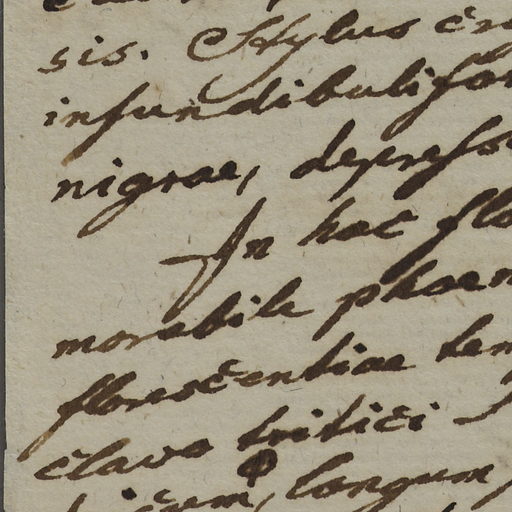 sis. Stylus
infundibulifor
nigrae, depress
In hac flo
morabile phaen
florescentiae tem
clavo tritici
longum